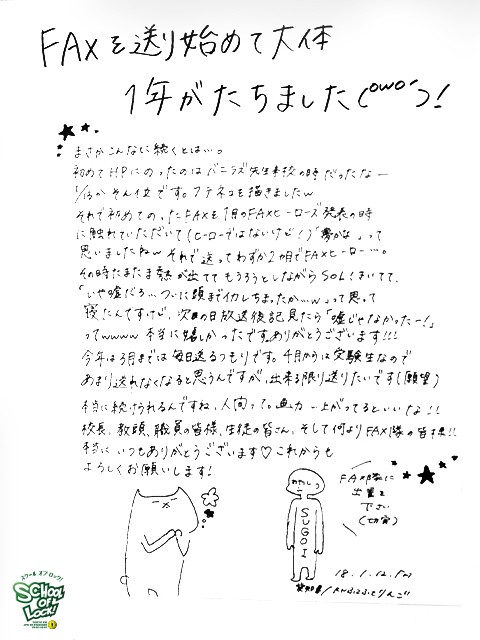 FAXを送り始めて大体
1年がたちました(ºωº´)!
まさかこんなに続くとは…。
初めてHPにのったのはバニラズ先生来校の時だったなー
1/13か そん位です。フテネコを描きましたw
それで初めてのったFAXを1月のFAXヒーローズ発表の時
に触れていただいて(ヒーローではないけど!)「夢かな」って
思いましたねw それで送ってわずか2ヶ月でFAXヒーロー…。
その時たまたま熱が出ててもうろうとしながらSOLきいてて、
「いや嘘だろ…ついに頭までイカレちまったか…w」って思って
寝たんですけど、次の日放送後記見たら「嘘じゃなかったー!」
ってwwww 本当に嬉しかったです。ありがとうございます!!!
今年は3月までは毎日送るつもりです。4月からは受験生なので
あまり送れなくなると思うんですが、出来る限り送りたいです(願望)
本当に続けられるんですね、人間って。画力一上がってるといいな!!
校長、教頭、職員の皆様、生徒の皆さん、そして何よりFAX隊の皆様!!
本当にいつもありがとうございます♡これからも
よろしくお願いします!
わたし
SUGOI
FAX隊に
出置き
下さい
(切実)
18.1.12.
愛知県/
りんご
スクール オブ ロック!
SCHOOL
OF
LOCK!